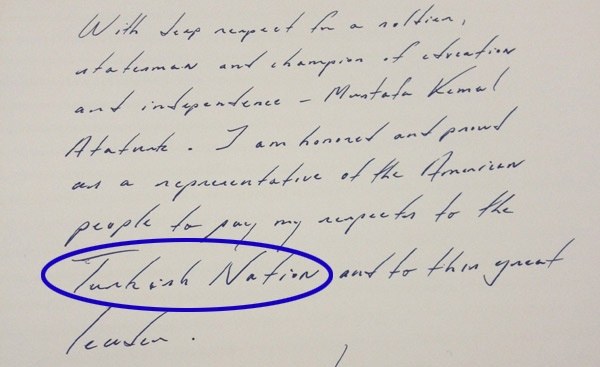 With deep respect for a soldier,
statesman and champion of education
and independence – Mustafa Kemal
Ataturk. I am honored and proud
as a representative of the American
people to pay my respects to the
Turkish Nation and to this great
leader.